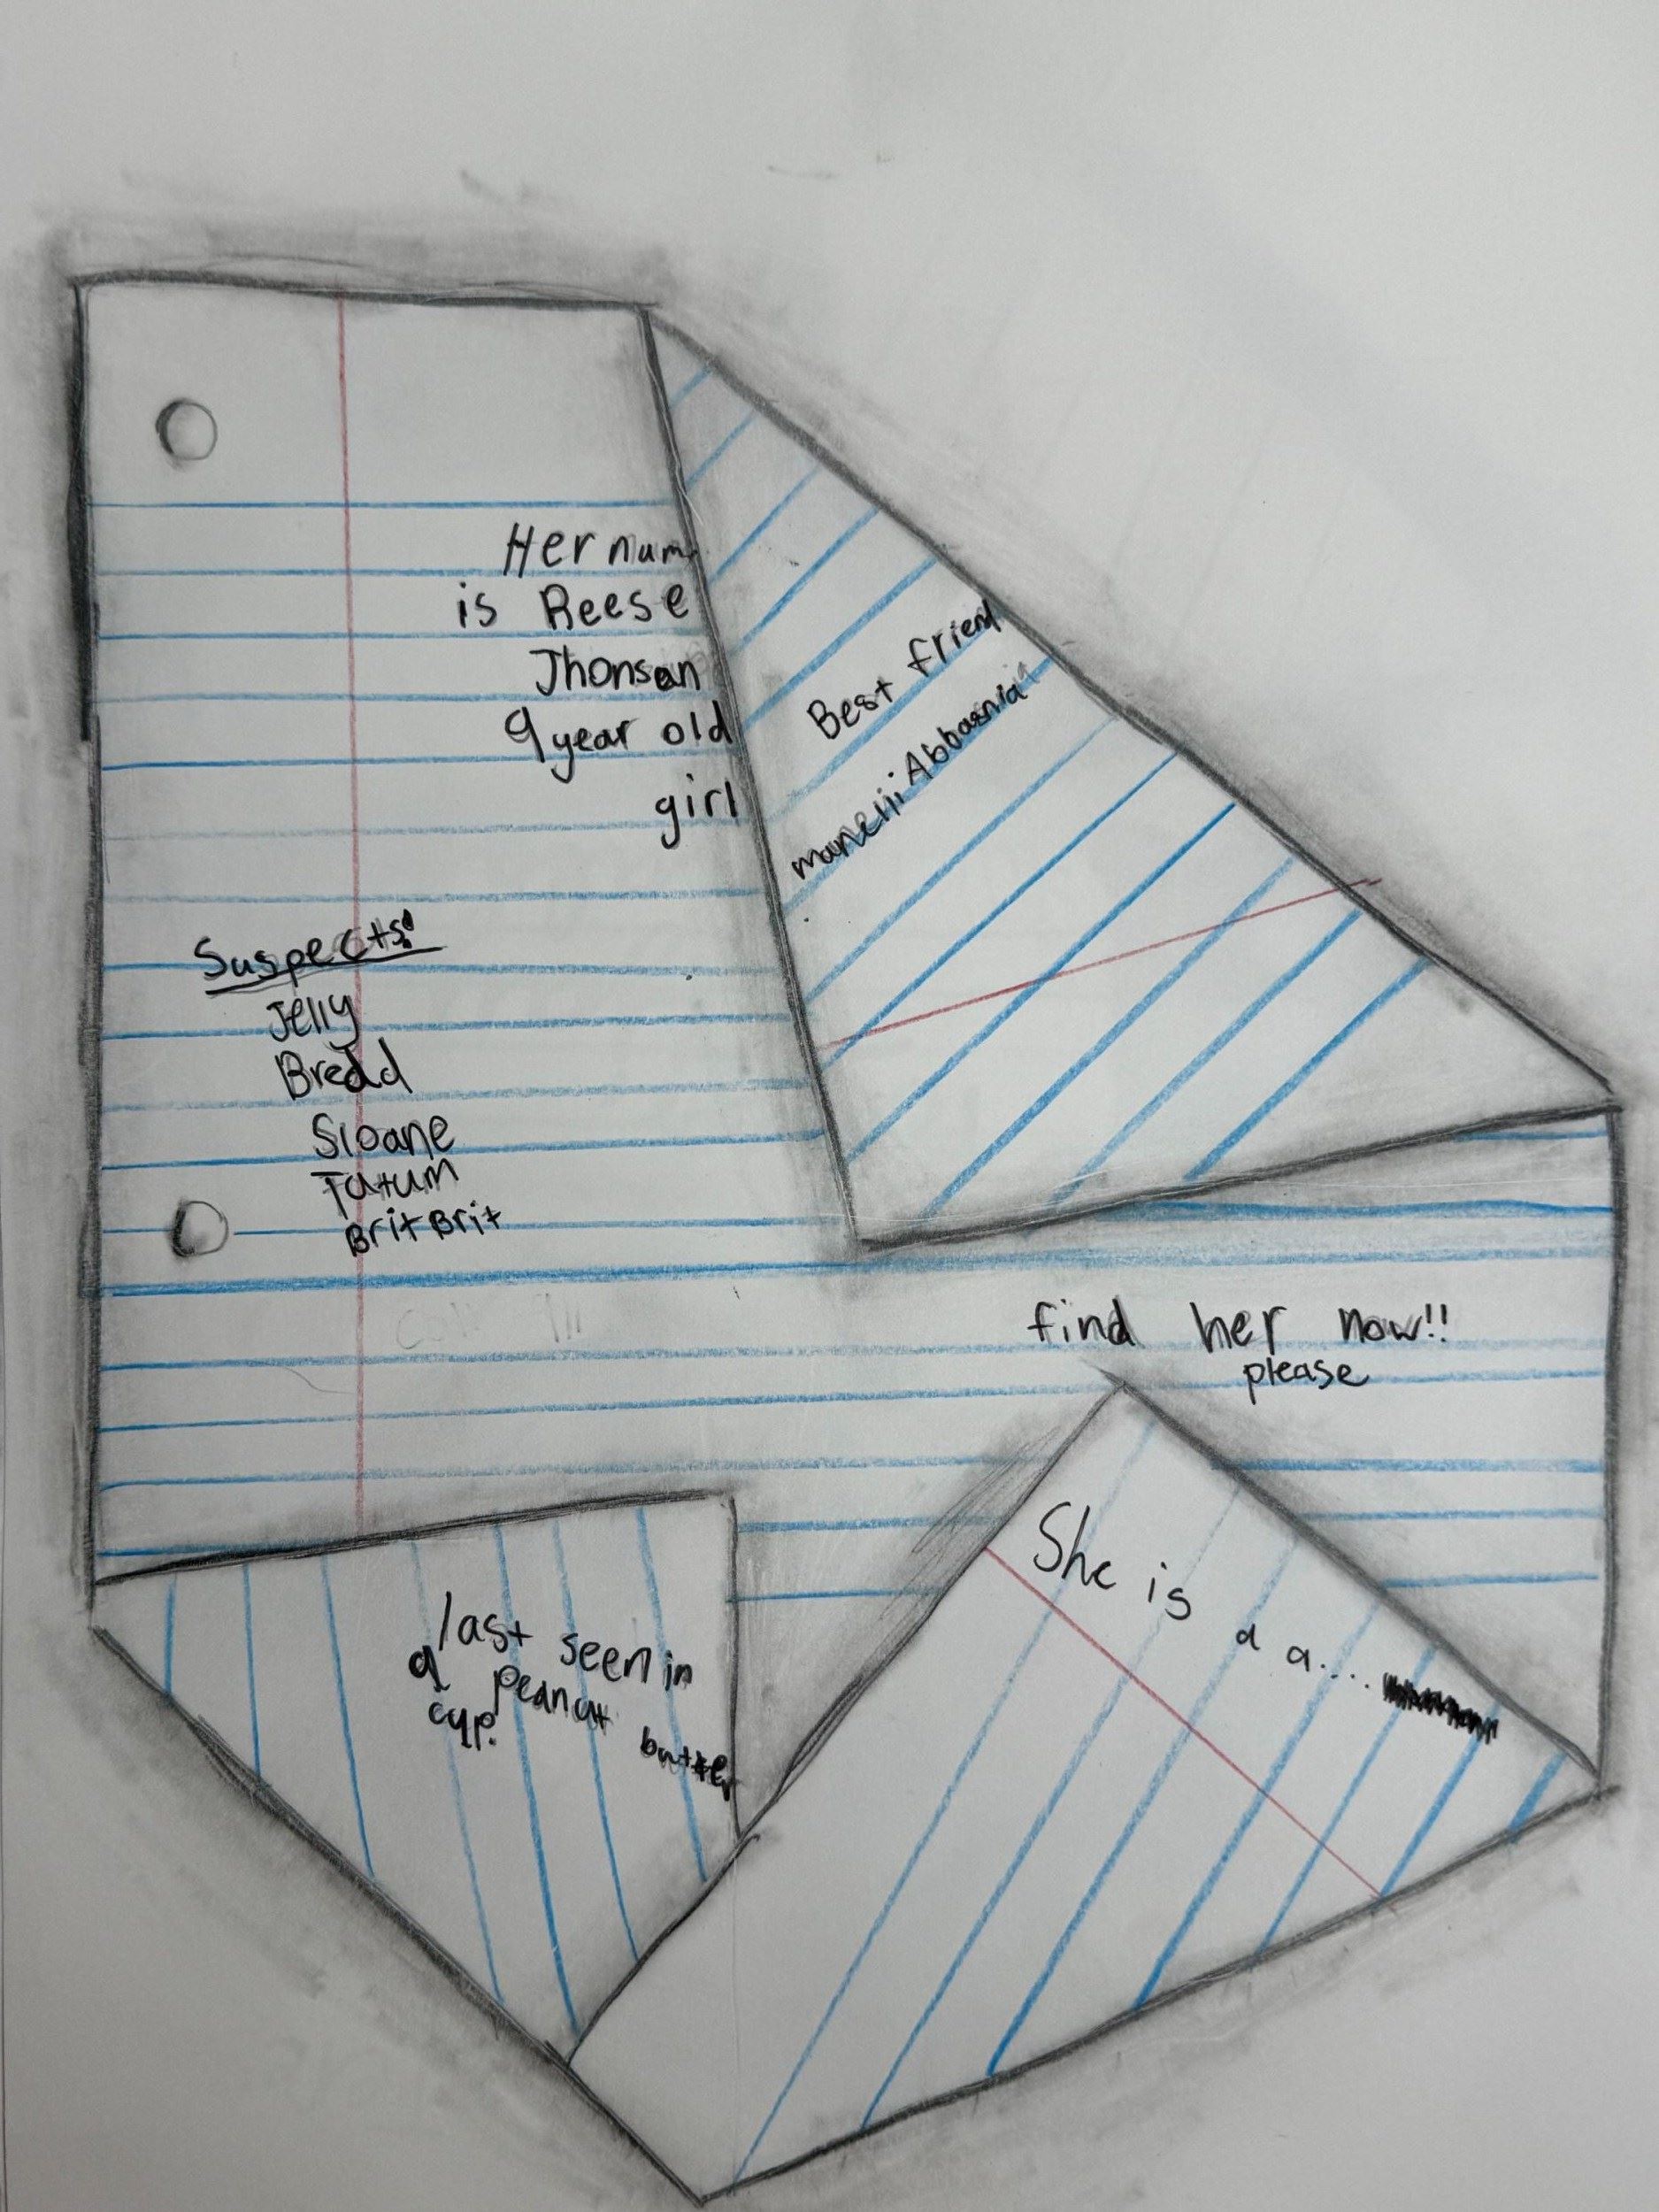 Her nam
is Reese
Jhonson
9 year old
girl
Best friend
Abbasnia
Suspects!
Jelly
Bredd
Sloane
Tatum
Brit Brit
find her now!!
please
She is a a...
last seen in
a peanut butter
cup.